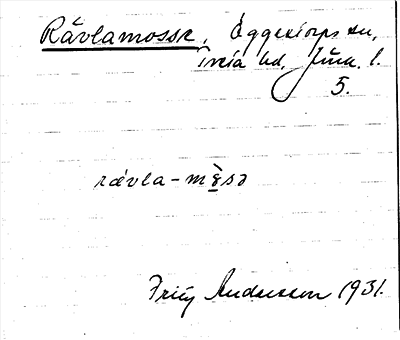 Rävlamosse, Öggestorps sn,
Tveta hd, Jönk. l.
5.
rävla-mòsə
Fritz Andersson 1931.